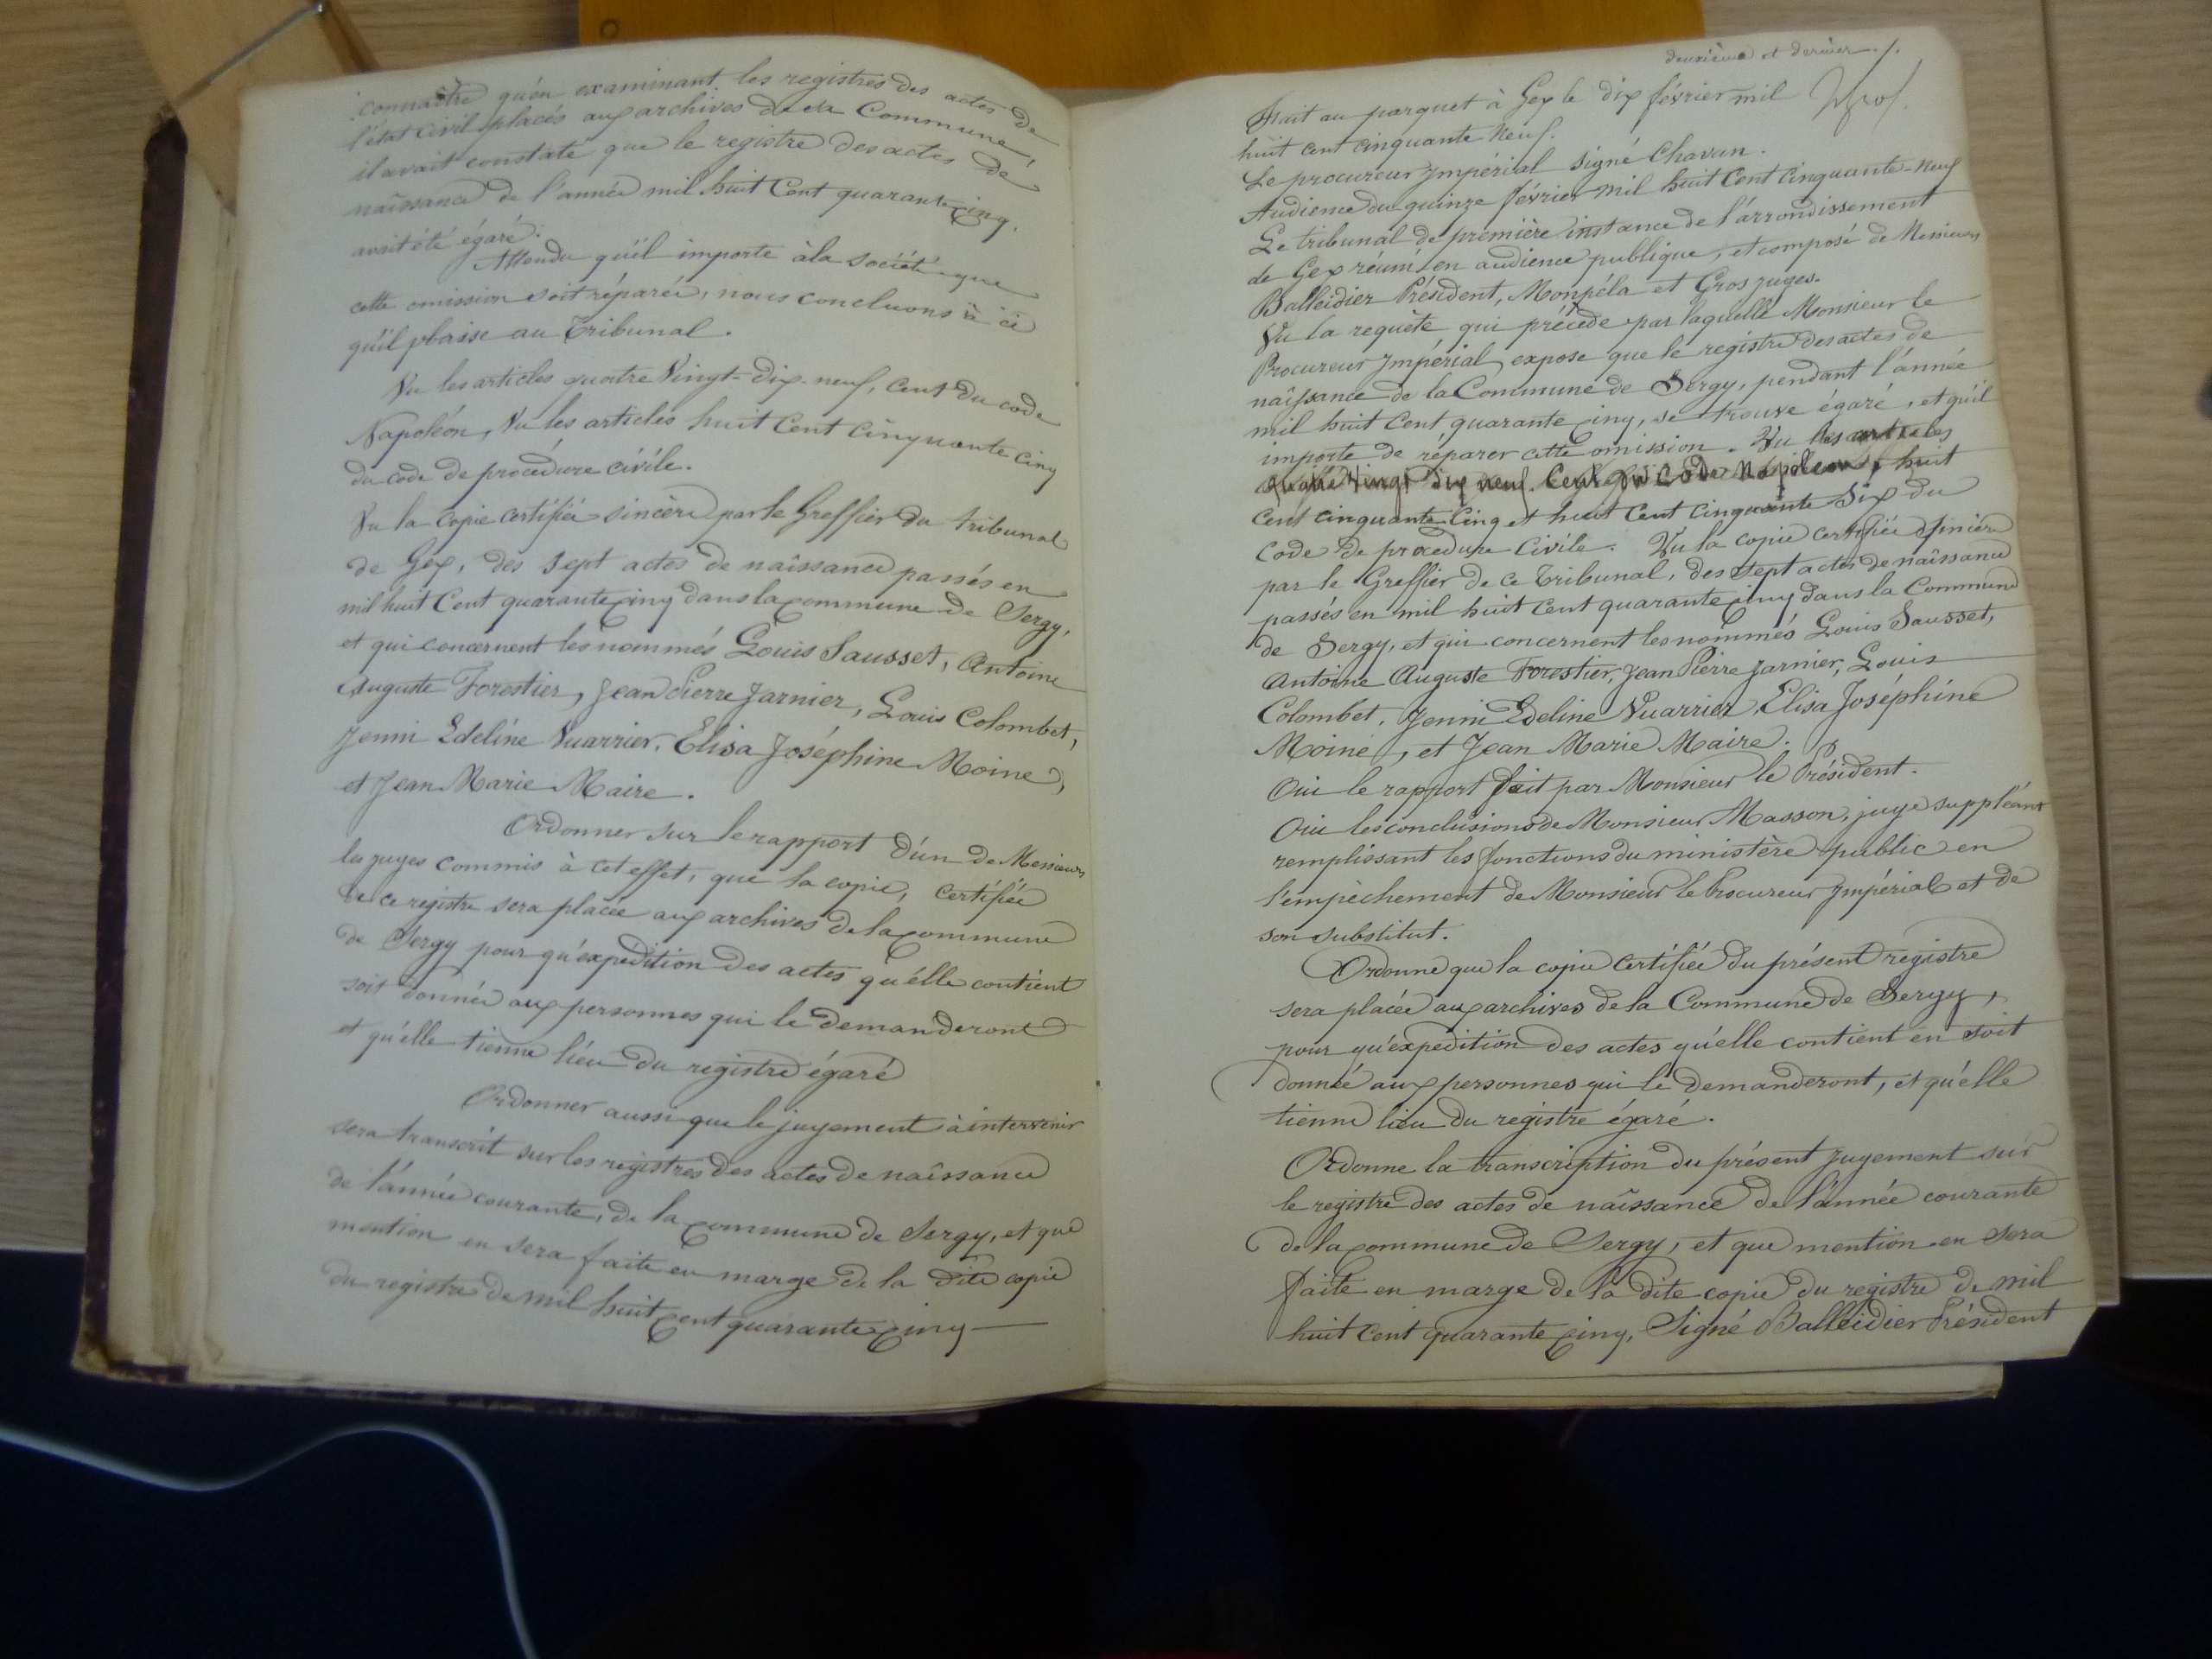 connaître qu'en examinant les registres des actes de
l'état civil placés aux archives de sa Commune,
il avait constaté que le registre des actes de
naîssance de l'année mil huit Cent quarante cinq,
avait été égaré.
Attendu qu'il importe à la société que
cette omission soit réparée, nous concluons à ce
qu'il plaise au Tribunal.
Vu les articles quatre Vingt-dix-neuf, Cent du code
Napoléon, Vu les articles huit Cent Cinquante cinq
du code de procédure civile.
Vu la Copie certifiée sincère par le Greffier du tribunal
de Gex, des sept actes de naîssance passés en
mil huit Cent quarante cinq dans la commune de Sergy,
et qui concernent les nommés Louis Sausset, Antoine
Auguste Forestier, Jean Pierre Jarnier, Louis Colombet,
Jenni Edeline Vuarrier, Elisa Joséphine Moine,
et Jean Marie Maire.
Ordonner sur le rapport d'un de Messieurs
les juges commis à cet effet, que la copie, certifiée
de ce registre sera placée aux archives de la commune
de Sergy pour qu'expédition des actes qu'elle contient
soit donnée aux personnes qui le demanderont
et qu'elle tienne lieu du registre égaré
Ordonner aussi que le jugement à intervenir
sera transcrit sur les registres des actes de naîssance
de l'année courante, de la commune de Sergy, et que
mention en sera faite en marge de la dite copie
du registre de mil huit cent quarante cinq
deuxième et dernier ./.
Fait au parquet à Gex le dix février mil
huit cent cinquante neuf.
Le procureur Impérial signé Chavan.
Audience du quinze février mil huit Cent Cinquante-neuf
Le tribunal de première instance de l'arrondissement
de Gex réuni en audience publique, et composé de Messieurs
Balleidier Président, Monpéla et Gros juges.
Vu la requête qui précède par laquelle Monsieur le
Procureur Impérial expose que le registre des actes de
naîssance de la Commune de Sergy, pendant l'année
mil huit Cent quarante cinq, se trouve égaré, et qu'il
importe de réparer cette omission. Vu les articles
quatre Vingt Dix neuf, Cent du Code Napoléon, huit
Cent cinquante Cinq et huit Cent Cinquante Six du
Code de procédure Civile. Vu la copie certifiée sincère
par le Greffier de ce Tribunal, des sept actes de naîssance
passés en mil huit Cent quarante cinq dans la Commune
de Sergy, et qui concernent les nommés Louis Sausset,
Antoine Auguste Forestier, Jean Pierre Jarnier, Louis
Colombet, Jenni Edeline Vuarrier, Elisa Joséphine
Moine, et Jean Marie Maire.
Oui le rapport fait par Monsieur le Président.
Oui les conclusions de Monsieur Masson, juge suppléant
remplissant les fonctions du ministère public en
l'empêchement de Monsieur le Procureur Impérial et de
son substitut.
Ordonne que la copie Certifiée du présent registre
sera placée aux archives de la Commune de Sergy,
pour qu'expédition des actes qu'elle contient en soit
donnée aux personnes qui le demanderont, et qu'elle
tienne lieu du registre égaré.
Ordonne la transcription du présent jugement sur
le registre des actes de naîssance de l'année courante
de la commune de Sergy, et que mention en sera
faite en marge de la dite copie du registre de mil
huit Cent quarante cinq, Signé Balleidier Président